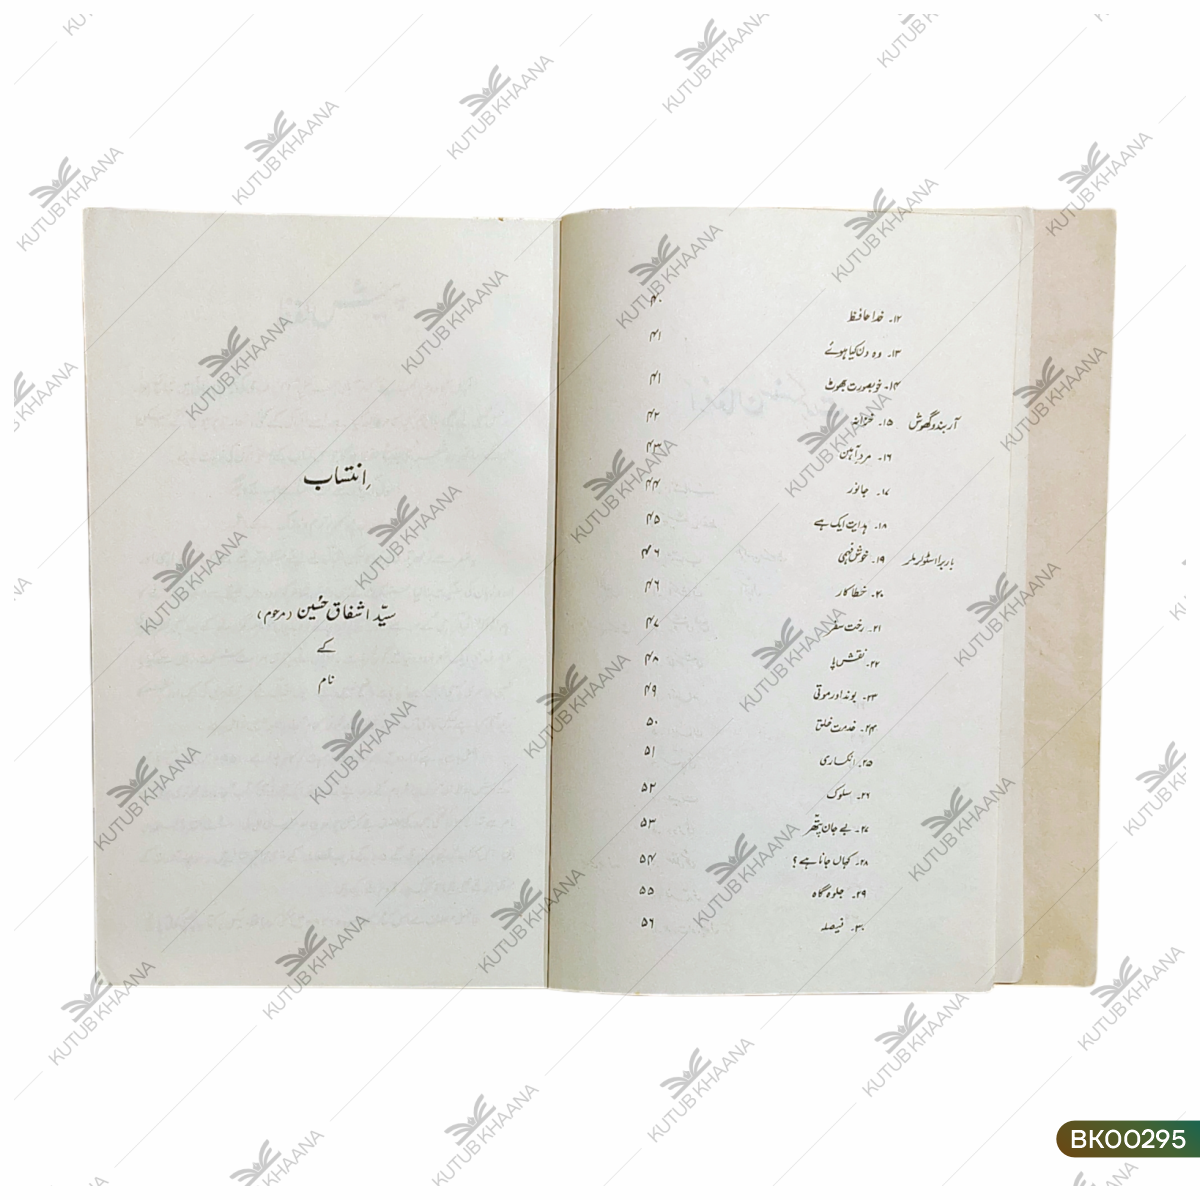 انتساب
سیّد اشفاق حسین (مرحوم)
کے
نام
۱۲۔ خدا حافظ ۴۰
۱۳۔ وہ دن کیا ہوئے ۴۱
۱۴۔ خوبصورت جھوٹ ۴۱
آربندو گھوش ۱۵۔ خزانہ ۴۲
۱۶۔ مرد آہن ۴۳
۱۷۔ جانور ۴۴
۱۸۔ ہدایت ایک ہے ۴۵
باربرا اسٹورملر ۱۹۔ خوش فہمی ۴۶
۲۰۔ خطا کار ۴۶
۲۱۔ رخت سفر ۴۷
۲۲۔ نقش پا ۴۸
۲۳۔ پوند اور موتی ۴۹
۲۴۔ خدمت خلق ۵۰
۲۵۔ انکساری ۵۱
۲۶۔ سلوک ۵۲
۲۷۔ بے جان پتّھر ۵۳
۲۸۔ کہاں جانا ہے؟ ۵۴
۲۹۔ جلوہ گاہ ۵۵
۳۰۔ فیصلہ ۵۶
KUTUB KHAANA
BK00295